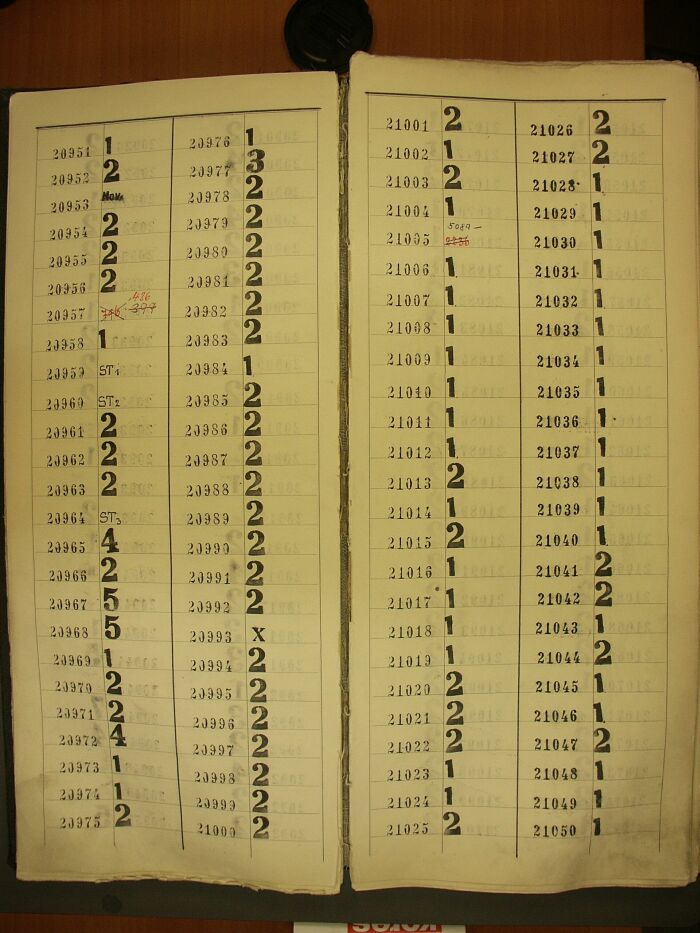 20951 1
20952 2
20953 Nov.
20954 2
20955 2
20956 2
20957 486 399
20958 1
20959 ST1
20960 ST2
20961 2
20962 2
20963 2
20964 ST3
20965 4
20966 2
20967 5
20968 5
20969 1
20970 2
20971 2
20972 4
20973 1
20974 1
20975 2
20976 1
20977 3
20978 2
20979 2
20980 2
20981 2
20982 2
20983 2
20984 1
20985 2
20986 2
20987 2
20988 2
20989 2
20990 2
20991 2
20992 2
20993 X
20994 2
20995 2
20996 2
20997 2
20998 2
20999 2
21000 2
21001 2
21002 1
21003 2
21004 1
5089 –
21005
21006 1
21007 1
21008 1
21009 1
21010 1
21011 1
21012 1
21013 2
21014 1
21015 2
21016 1
21017 1
21018 1
21019 1
21020 2
21021 2
21022 2
21023 1
21024 1
21025 2
21026 2
21027 2
21028 1
21029 1
21030 1
21031 1
21032 1
21033 1
21034 1
21035 1
21036 1
21037 1
21038 1
21039 1
21040 1
21041 2
21042 2
21043 1
21044 2
21045 1
21046 1
21047 2
21048 1
21049 1
21050 1
kores